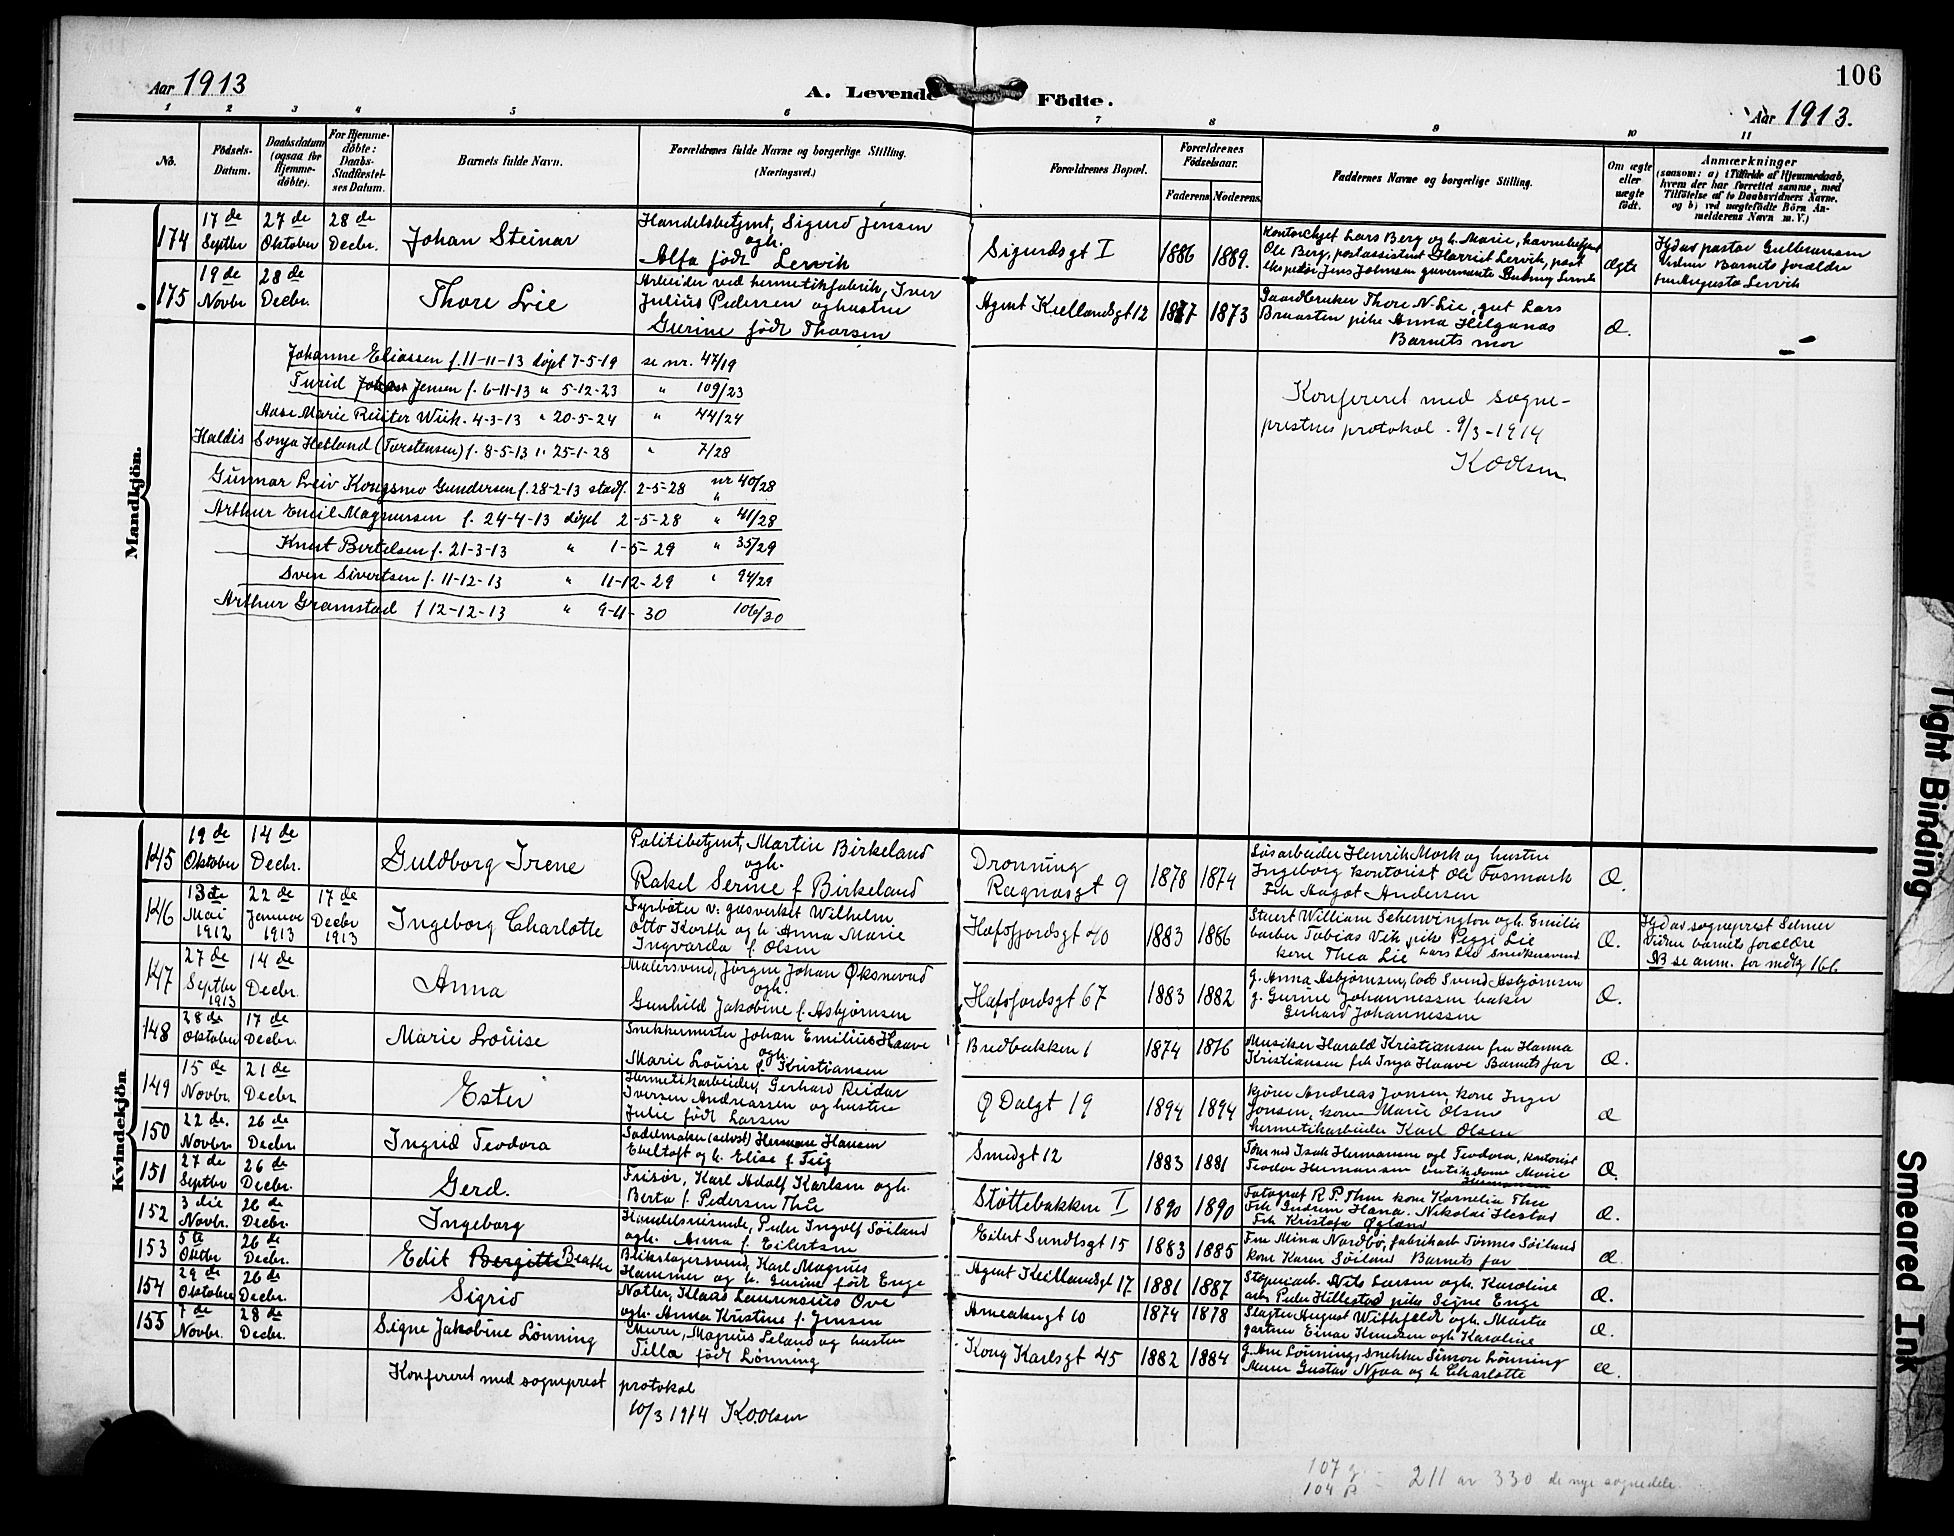 106
Aar 1913
A. Levende Födte.
Aar 1913.
1 2 3 4 5 6 7 8 9 10 11
No.
Födsels-
Datum.
Daabsdatum
(ogsaa for
Hjemme-
döbte).
For Hjemme-
döbte:
Daabs-
Stadfæstel-
ses Datum.
Barnets fulde Navn.
Forældrenes fulde Navne og borgerlige Stilling.
(Næringsvei.)
Forældrenes Bopæl.
Forældrenes
Födselsaar.
Faderens. Moderens.
Faddernes Navne og borgerlige Stilling.
Om ægte
eller
uægte
födt.
Anmærkninger
(saasom: a) i Tilfælde af Hjemmedaab,
hvem der har forrettet samme, med
Tilföielse af to Daabsvidners Navne.
og b) ved uægtefödte Börn An-
melderens Navn m. V.)
Mandkjön.
174
17 de
Septbr
27 de
Oktober
28 de
Decbr.
Johan Steinar
Handelsbetjent, Sigurd Jensen
ogh.
Alfa födt Lervik
Sigurdsgt I
1886 1889.
Kontorchef Lars Berg og h. Marie, havnebetjent
Ole Berg, postassistent Harriet Lervik, post
ekspeditør Jens Johnsen guvernante Gudny Lervik
Ægte
Hjdav pastor Gulbransen
Vidner Barnets forældre
fru Augusta Lervik
175
19 de
Novbr
28 de
Decbr.
Thore Lie
Arbeider ved hermetikfabrik, Iver
Julius Pedersen og hustru
Gurine födt Thorsen
Agent Kiellandsgt 12
1877 1873
Gaardbruker Thore N. Lie, gut Lars
Braasten pike Anna Helganas
Barnets mor
Æ.
Johanne Eliassen f. 11-11-13 døpt 7-5-19 se nr. 47/19
Turid Jensen f. 6-11-13 " 5-12-23 " 109/23
Aase Marie Reuter Wiik. 4-3-13 " 20-5-24 " 44/24
Haldis Sonja Hetland (Torstensen) f. 8-5-13 " 25-1-28 " 7/28
Gunnar Leiv Kongsmo Gundersen f. 28-2-13 stadf. 2-5-28 nr 40/28
Arthur Emil Magnussen f. 24-4-13 døpt 2-5-28 " 41/28
Knut Bertelsen f. 21-3-13 " 1-5-29 " 35/29
Sven Sivertsen f. 11-12-13 " 11-12-29 " 94/29
Arthur Gramstad f 12-12-13 " 9-11-30 106/30
Konfereret med sogne-
prestens protokol. 9/3-1914
K.O.Olsen
Kvindekjön
145
19 de
Oktober
14 de
Decbr.
Guldborg Irene
Politibetjent, Martin Birkeland
ogh.
Rakel Serine f Birkeland
Dronning
Ragnasgt 9
1878 1874
Løsarbeider Henrik Mork og hustru
Ingeborg kontorist Ole Fosmark
Frk Aagot Andersen
Æ.
146
13de
Mai
1912
22 de
Januar
1913
17 de
Decbr
1913
Ingeborg Charlotte
Fyrbøter v: gasverket Wilhelm
Otto Korth og h. Anna Marie
Ingvarda f. Olsen
Hafsfjordsgt 40
1883 1886
Stuert William Scherwington ogh. Emilie
barber Tobias Vik, pike Peggi Lie
kone Thea Lie Lars Lie Snedkersvend
Æ.
Hjdav sogneprest Selmer
Vidner barnets forældre
NB se anm. for mdkj 166
147
27 de
Septbr
1913
14 de
Decbr.
Anna
Malersvend, Jørgen Johan Øksnevad
ogh.
Gunhild Jakobine f. Asbjørnsen
Hafsfjordsgt 67
1883 1882
g. Anna Asbjørnsen, lods Svend Asbjørnsen
g. Gurine Johannessen baker
Gerhard Johannessen
Æ.
148
28 de
Oktober
17 de
Decbr.
Marie Louise
Snekkermester Johan Emilius Haave
ogh.
Marie Louise f. Kristiansen
Bredbakken 1
1874 1876
Musiker Harald Kristiansen fru Hanna
Kristiansen frk Inga Haave Barnets far
Æ.
149
15 de
Novbr.
21 de
Decbr
Ester
Hermetikarbeider, Gerhard Reidar
Iversen Andreassen og hustru
Julie født Larsen
Ø Dalgt 19
1894 1894
kjører Andreas Jonsen, kone Inger
Jonsen, kone Marie Olsen
hermetikarbeider Karl Olsen
Æ
150
22 de.
Novbr.
26 de
Decbr.
Ingrid Teodora
Sadelmaker (selvst) Herman Hansen
Ebeltoft og h. Elise f. Feig
Smedgt 12
1883 1881
Tømmend Isak Hermansen ogh Teodora, kontorist
Teodor Hermansen butikdame Marie
Hermansen
Æ.
151
27 de
Septbr
26 de
Decbr.
Gerd.
Frisør, Karl Adolf Karlsen ogh.
Berta f. Pedersen Thu
Støttebakken I
1890 1890
Fotograf R.P. Thu kone Kornelia Thu
Frk Gudrun Hana. Nikolai Hestad
Frk Kristofa Øgland
Æ.
152
3 die
Novbr.
26 de
Decbr.
Ingeborg
Handelsreisende, Peder Ingolf Søiland
ogh. Anna f. Eilertsen
Eilert Sundtsgt 15
1883 1885
Fru Mina Nordbø, fabrikarb Tønnes Søiland
kone Karen Søiland Barnets far
Æ.
153
5te
Oktbr
26 de
Decbr.
Edit Bergitte Beathe
Blikslagersvend, Karl Magnus
Hammer og h. Gurine født Enge
Agent Kiellandsgt 17
1881 1887
Støperiarb. Nils Larsen ogh. Karoline
arb. Peder Hillestad pike Signe Enge
Æ.
154
29 de
Oktober
26 de
Decbr.
Sigrid
Notler, Klaas Laurensius Ove
ogh. Anna Kristine f. Jensen
Ameakengt 10
1874 1878
Slagter August Withfeldt ogh. Marta
gartner Einar Knudsen ogh Karoline
Æ.
155
7 de
Novbr.
28 de
Decbr.
Signe Jakobine Lønning
Murer, Magnus Seland og hustru
Tilla født Lønning
Kong Karlsgt 45
1882 1884
g. Ane Lønning, Snekker Simon Lønning
Murer Gustav Njaa og h Charlotte
Æ.
Konfereret med sogneprest protokol
10/3 1914 K.O.Olsen
107 g.
104 p. - 211 av 330 de nye sognedele.
Tight Binding
Smeared Ink